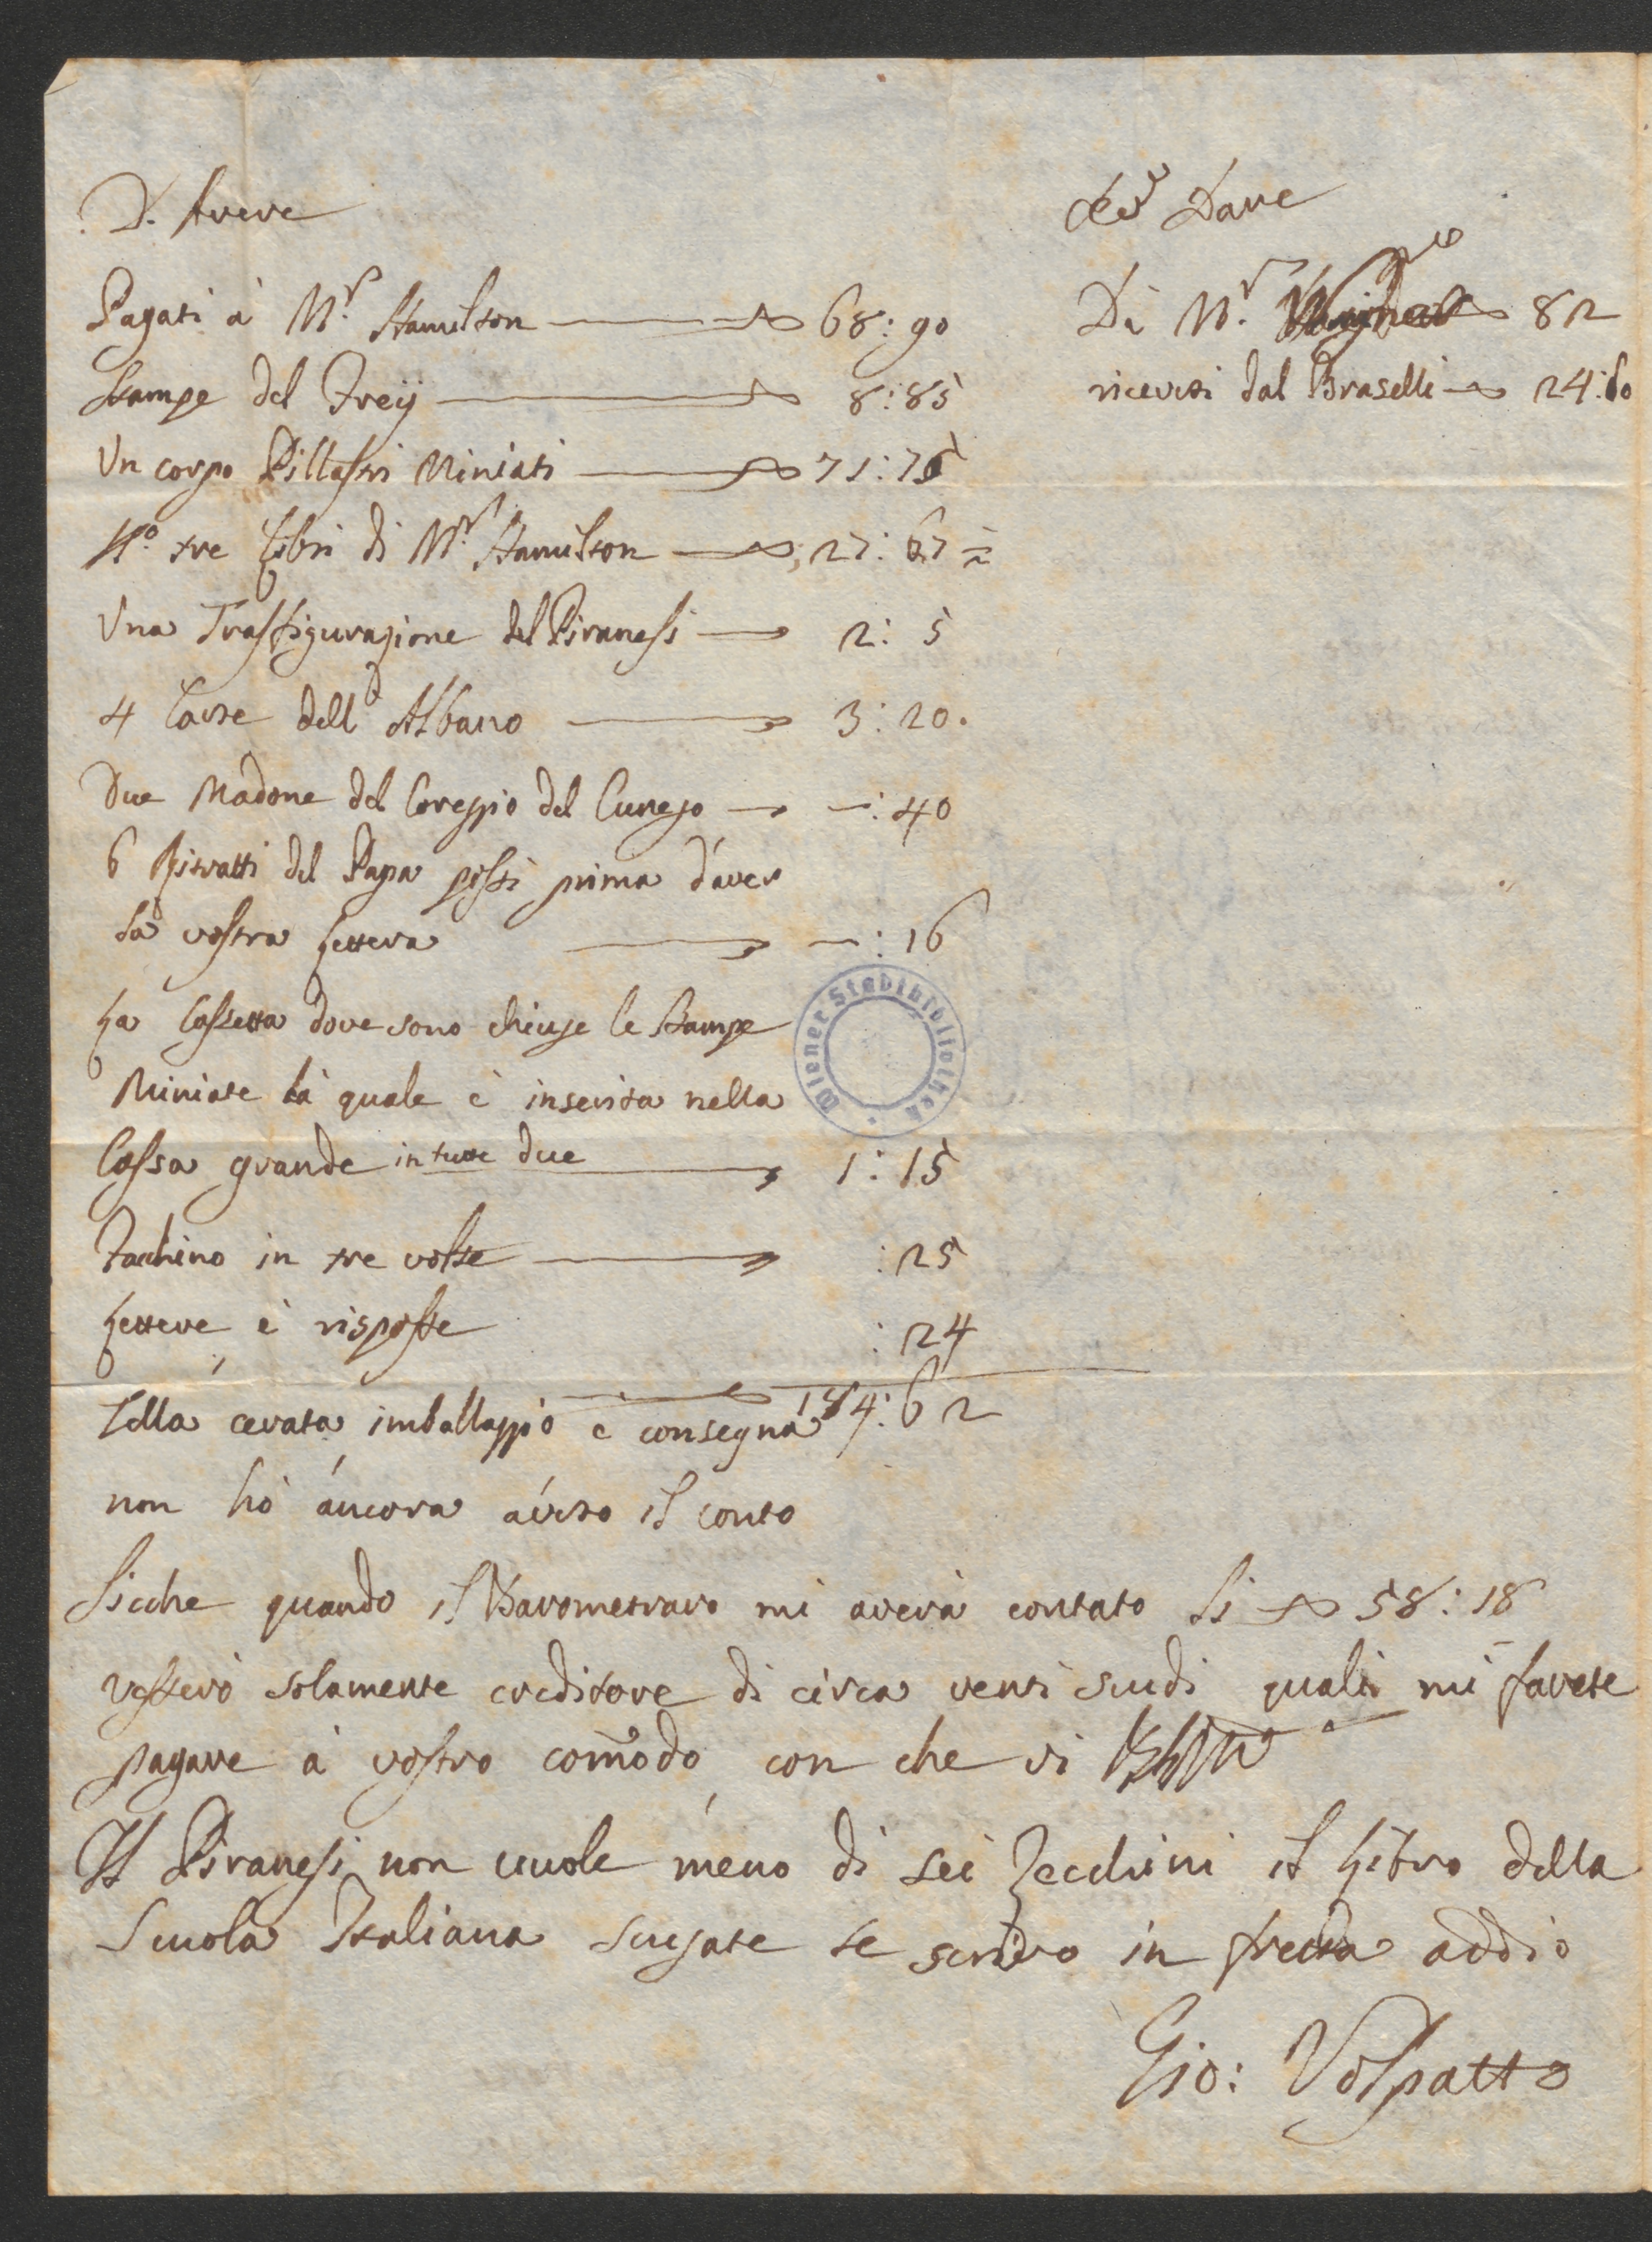 D. Avere
Pagati à M.r Hamilton 68: 90
Stampe del Freij 8: 85
Un corpo Pillastri Miniati 71: 75
N.o tre Libri di M.r Hamilton 27: 67
Una Trasfigurazione del Piranesi 2: 5
4 Carte dell Albano 3: 20.
Due Madone del Coregio del Cunego —: 40
6 Ritratti del Papa posti prima d'aver
la vostra Lettera —: 16
La Cassetta dove sono chiuse le Stampe
Miniate la quale è inserita nella
Cassa grande in tutte due 1: 15
Fachino in tre volte : 25
Lettere, è risposte : 24
184: 62
Tella cerata imballaggio e consegna
non hò áncora aúto il conto
Sicche quando il Barometraro mi averà contato li 58: 18
resterò solamente creditore di circa venti scudi quali mi farete
pagare à vostro com̃odo, con che vi
Il Piranesi non vuole meno di sei Zecchini il Libro della
Scuola Italiana scusate se scrivo in fretta addio
Gio: Volpatto
Dare
Dà M.r 82
riceviti dal Braselli 24: 60
Wiener Stadtbibliothek